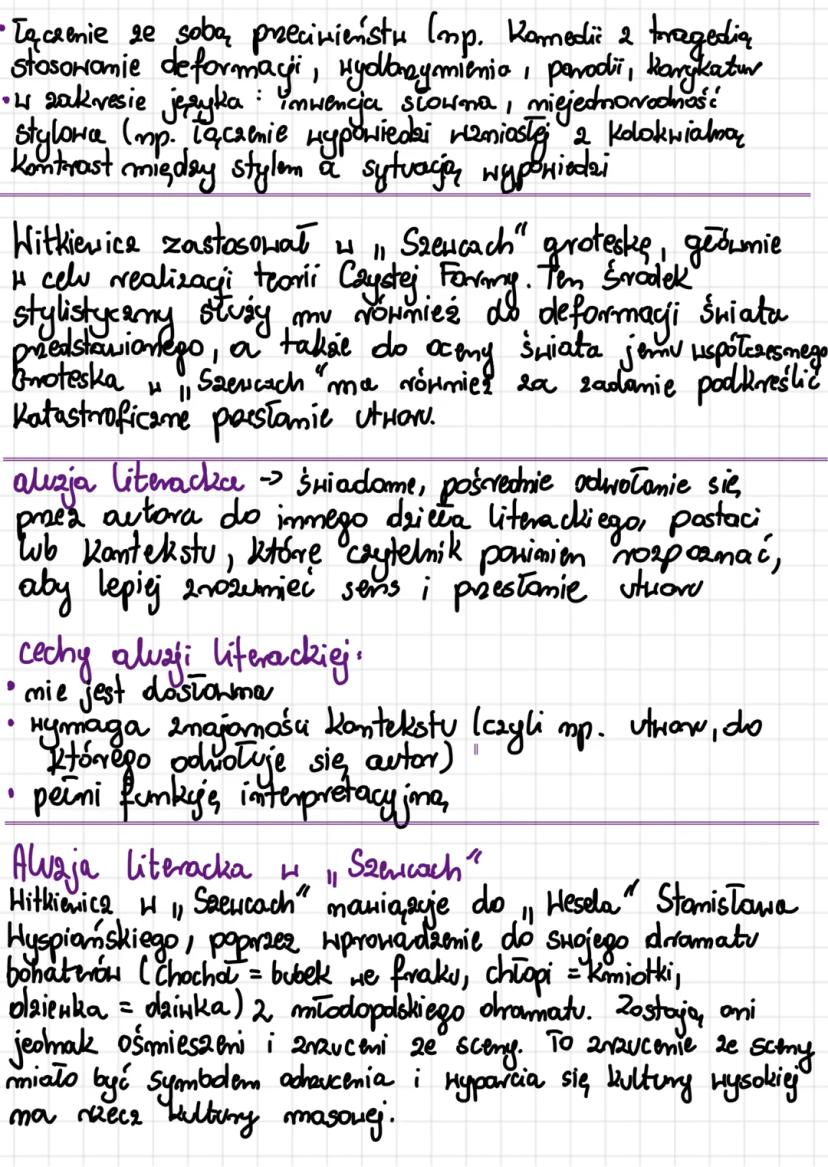 • łączenie ze sobą przeciwieństw (np. komedii z tragedią
stosowanie deformacji, wyolbrzymienia, parodii, karykatur
• w zakresie języka: inwencja słowna, niejednorodność
stylowa (np. łączenie wypowiedzi wzniosłej z kolokwialną
kontrast między stylem a sytuacją wypowiedzi
Witkiewicz zastosował w „Szewcach" groteskę, głównie
w celu realizacji teorii Czystej Formy. Ten środek
stylistyczny służy mu również do deformacji świata
przedstawionego, a także do oceny świata jemu współczesnego
Groteska w „Szewcach" ma również za zadanie podkreślić
katastroficzne przesłanie utworu.
aluzja literacka -> świadome, pośrednie odwołanie się
przez autora do innego dzieła literackiego, postaci
lub kontekstu, które czytelnik powinien rozpoznać,
aby lepiej zrozumieć sens i przesłanie utworu
cechy aluzji literackiej:
• nie jest dosłowna
• wymaga znajomości kontekstu (czyli np. utworu, do
którego odwołuje się autor)
• pełni funkcję interpretacyjną
Aluzja literacka w „Szewcach"
Witkiewicz w „Szewcach" nawiązuje do „Wesela" Stanisława
Wyspiańskiego, poprzez wprowadzenie do swojego dramatu
bohaterów (Chochoł = bubek we fraku, chłopi = kmiotki,
dziewka = dziwka) z młodopolskiego dramatu. Zostają oni
jednak ośmieszeni i zrzuceni ze sceny. To zrzucenie ze sceny
miało być symbolem odrzucenia i wyparcia się kultury wysokiej
na rzecz kultury masowej.